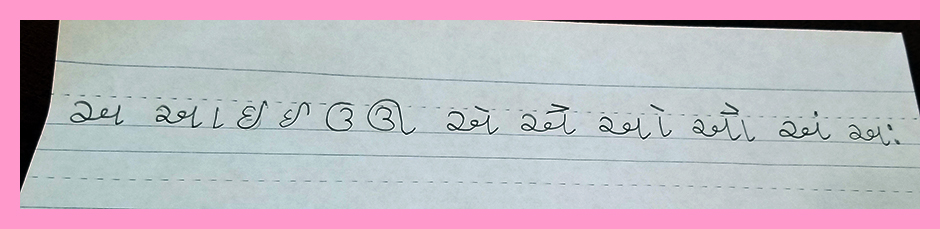 અ આ ઇ ઈ ઉ ઊ એ ઐ ઓ ઔ અં અઃ